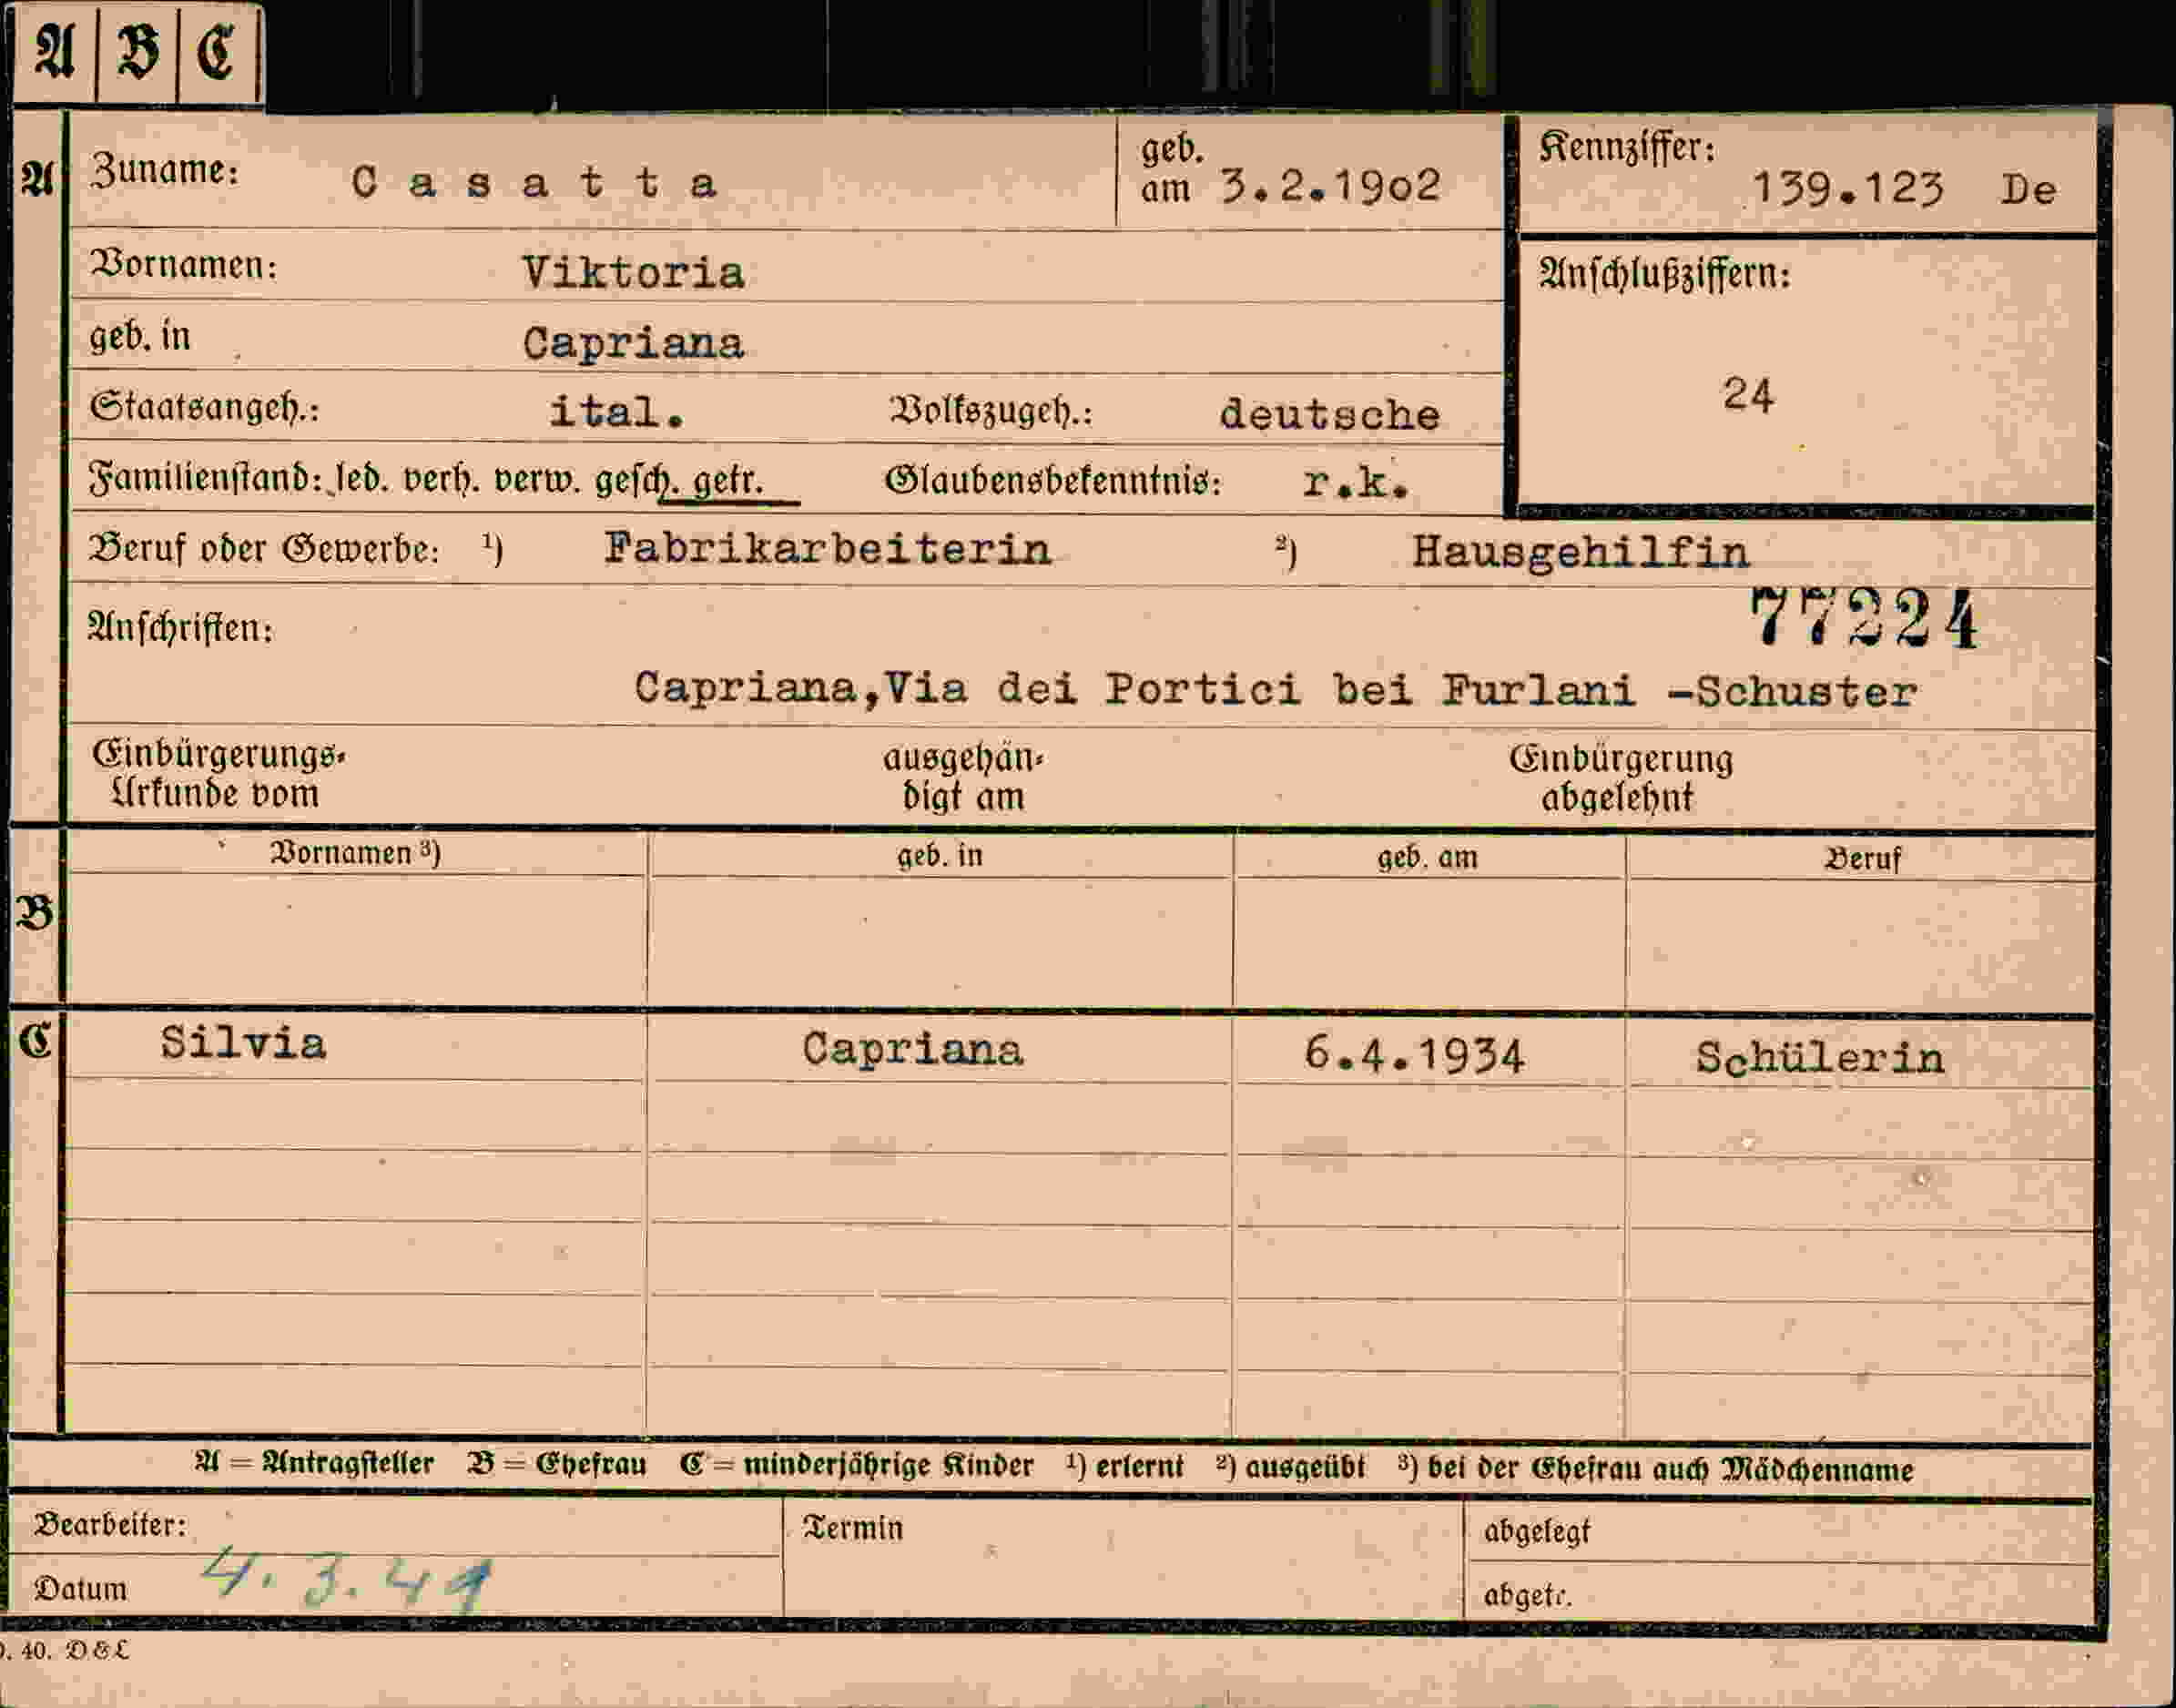 A B C
A Zuname: Casatta geb. am 3.2.1902 Kennziffer: 139.123 De
Vornamen: Viktoria Anschlußziffern:
geb. in Capriana
24
Staatsangeh.: ital. Volkszugeh.: deutsche
Familienstand: led. verh. verw. gesch. getr. Glaubensbekenntnis: r.k.
Beruf oder Gewerbe: 1) Fabrikarbeiterin 2) Hausgehilfin
77224
Anschriften:
Capriana,Via dei Portici bei Furlani -Schuster
Einbürgerungs- ausgehän- Einbürgerung
Urkunde vom digt am abgelehnt
Vornamen 3) geb. in geb. am Beruf
B
C Silvia Capriana 6.4.1934 Schülerin
A = Antragsteller B = Ehefrau C = minderjährige Kinder 1) erlernt 2) ausgeübt 3) bei der Ehefrau auch Mädchenname
Bearbeiter: Termin abgelegt
Datum 4.3.41 abgetr.
40. D&L